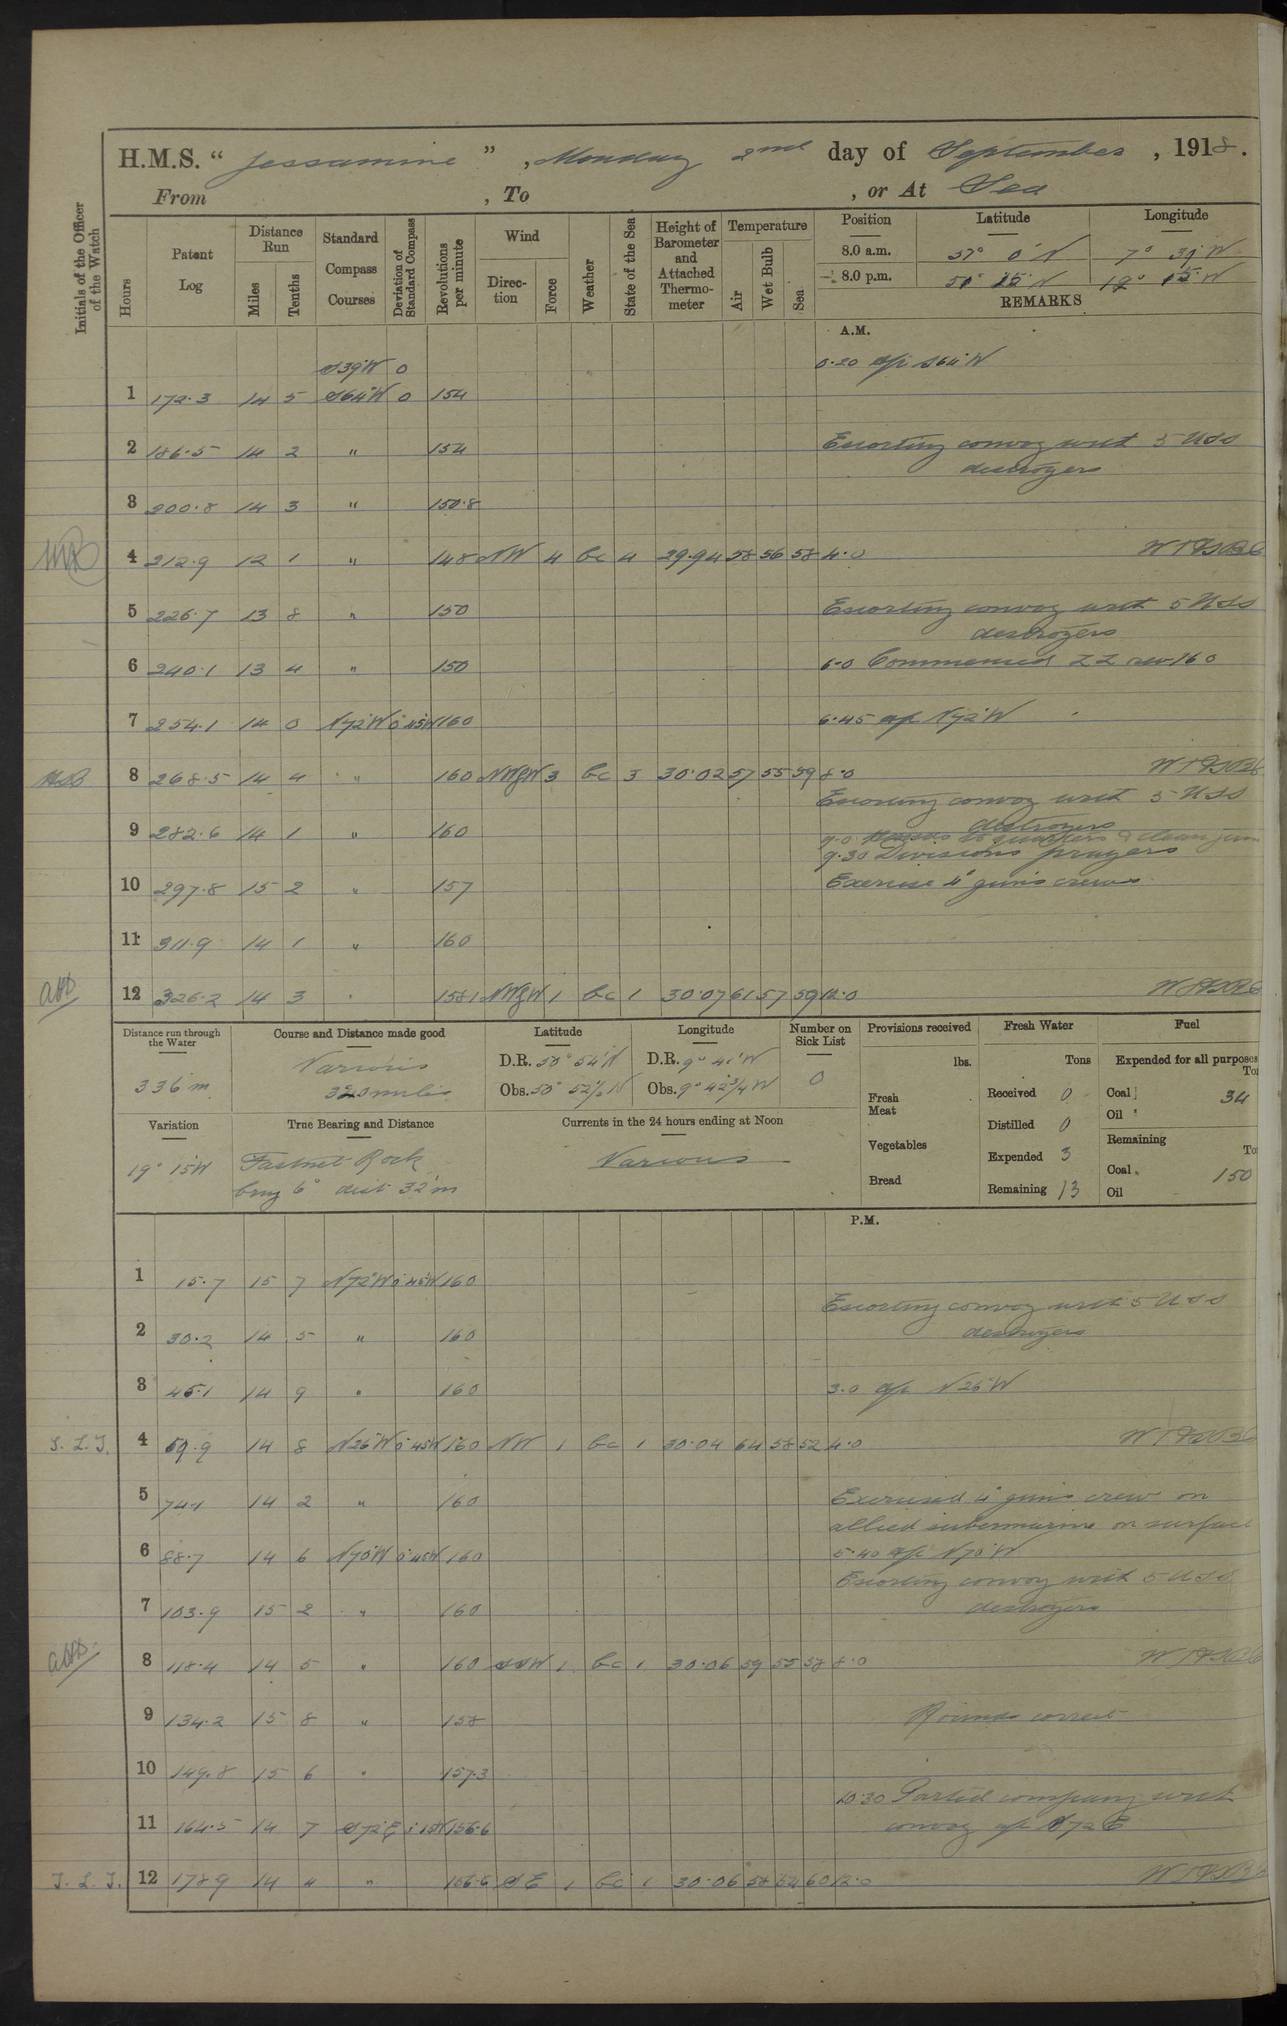 H.M.S. "Jessamine", Monday 2nd day of September, 1918.
From , To , or At Sea
Initials of the Officer of the Watch
Hours
Patent Log
Distance Run
Miles
Tenths
Standard Compass Courses
Deviation of Standard Compass
Revolutions per minute
Wind
Direction
Force
Weather
State of the Sea
Height of Barometer and Attached Thermometer
Temperature
Air
Wet Bulb
Sea
Position Latitude Longitude
8.0 a.m. 0' N 7° 39' W
8.0 p.m. 15' N 15' W
REMARKS
A.M.
S39°W 0 0.20 a/c S64°W
1 172.3 14 5 S64°W 0 154
2 186.5 14 2 " 154 Escorting convoy with 5 USS
destroyers
3 200.8 14 3 " 150.8
4 212.9 12 1 " 148 NW 4 bc 4 29.94 58 56 58 4.0
5 226.7 13 8 " 150 Escorting convoy with 5 USS
destroyers
6 240.1 13 4 " 150 6-0 Commenced ZZ rev 160
7 254.1 14 0 N72°W 0°45'W 160 6.45 a/c N72°W
8 268.5 14 4 " 160 NWgW 3 bc 3 30.02 57 55 59 8.0
Escorting convoy with 5 USS
destroyers
9 282.6 14 1 " 160 9.0 to quarters & clean
9.30 Divisions prayers
10 297.8 15 2 " 157 Exercise 4" guns crews
11 311.9 14 1 " 160
12 326.2 14 3 " 158.1 NWgW 1 bc 1 30.07 61 57 59 12.0
Distance run through the Water
336 m
Course and Distance made good
Various
320 miles
Latitude
D.R. 50° 54' N
Obs. 50° 52½ N
Longitude
D.R. 9° 41' W
Obs. 9° 42¾ W
Number on Sick List
0
Provisions received
lbs.
Fresh Meat
Vegetables
Bread
Fresh Water
Tons
Received 0
Distilled 0
Expended 3
Remaining 13
Fuel
Expended for all purposes
Coal 34
Oil
Remaining
Coal 150
Oil
Variation
19° 15'W
True Bearing and Distance
Fastnet Rock
brng 6° dist 32'm
Currents in the 24 hours ending at Noon
Various
P.M.
1 15.7 15 7 N72°W 0°45'W 160
Escorting convoy with 5 USS
2 30.2 14 5 " 160 destroyers
3 45.1 14 9 " 160 3.0 a/c N26°W
J. L. J. 4 59.9 14 8 N26°W 0°45'W 160 NW 1 bc 1 30.04 64 58 52 4.0
5 74.1 14 2 " 160 Exercised 4" guns crew on
allied submarine on surface
6 88.7 14 6 N70°W 0°45'W 160 5.40 a/c N70°W
Escorting convoy with 5 USS
7 103.9 15 2 " 160 destroyers
8 118.4 14 5 " 160 SSW 1 bc 1 30.06 59 55 58 8.0
9 134.2 15 8 " 158 Rounds correct
10 149.8 15 6 " 157.3
10.30 Parted company with
11 164.5 14 7 S72°E 156.6 convoy a/c S72E
J. L. J. 12 178.9 14 4 " 156.6 SE 1 bc 1 30.06 58 54 60 12.0